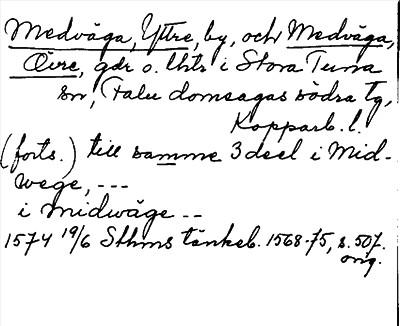 Medväga, Yttre, by, och Medväga,
Övre, gdr o. lhtr i Stora Tuna
sn, Falu domsagas södra tg,
Kopparb. l.
(forts.) till samme 3 deel i Mid-
wege, ---
i Midwäge --
1574 19/6 Sthms tänkeb. 1568-75, s. 507.
orig.